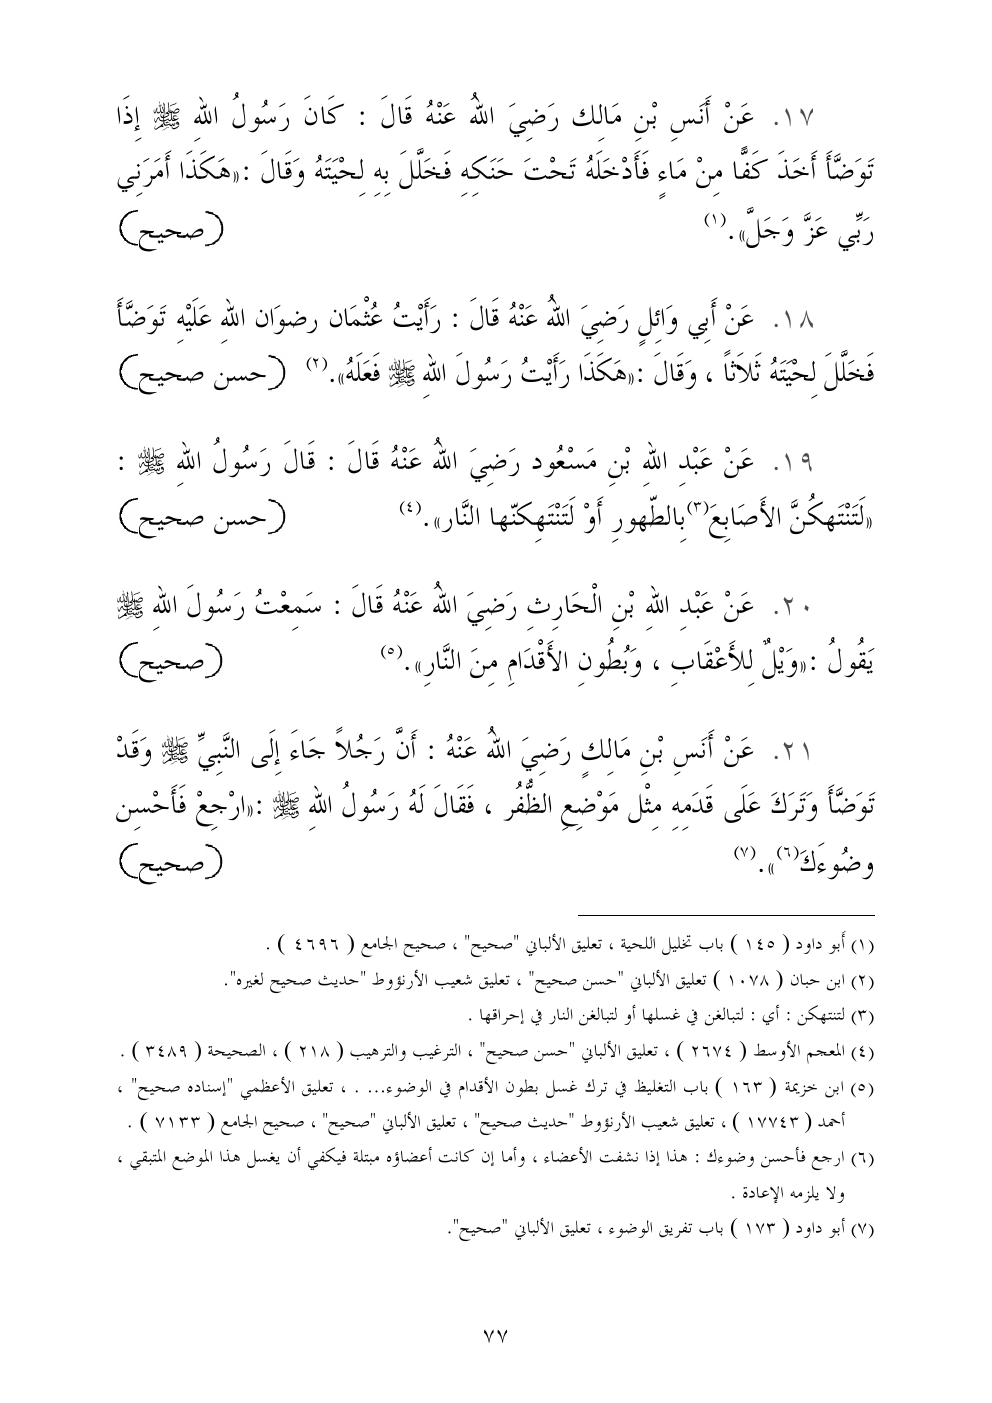 ١٧. عَنْ أَنَسِ بْنِ مَالِك رَضِيَ اللهُ عَنْهُ قَالَ : كَانَ رَسُولُ اللهِ ﷺ إِذَا
تَوَضَّأَ أَخَذَ كَفًّا مِنْ مَاءٍ فَأَدْخَلَهُ تَحْتَ حَنَكِهِ فَخَلَّلَ بِهِ لِحْيَتَهُ وَقَالَ :«هَكَذَا أَمَرَنِي
رَبِّي عَزَّ وَجَلَّ».(١) (صحيح)
١٨. عَنْ أَبِي وَائِلٍ رَضِيَ اللهُ عَنْهُ قَالَ : رَأَيْتُ عُثْمَان رضوَان اللهِ عَلَيْهِ تَوَضَّأَ
فَخَلَّلَ لِحْيَتَهُ ثَلاَثاً ، وَقَالَ :«هَكَذَا رَأَيْتُ رَسُولَ اللهِ ﷺ فَعَلَهُ».(٢) (حسن صحيح)
١٩. عَنْ عَبْدِ اللهِ بْنِ مَسْعُود رَضِيَ اللهُ عَنْهُ قَالَ : قَالَ رَسُولُ اللهِ ﷺ :
«لَتَنْتَهِكُنَّ الأَصَابِعَ(٣)بِالطّهورِ أَوْ لَتَنْتَهِكنّها النَّار».(٤) (حسن صحيح)
٢٠. عَنْ عَبْدِ اللهِ بْنِ الْحَارِثِ رَضِيَ اللهُ عَنْهُ قَالَ : سَمِعْتُ رَسُولَ اللهِ ﷺ
يَقُولُ :«وَيْلٌ لِلأَعْقَابِ ، وَبُطُونِ الأَقْدَامِ مِنَ النَّارِ».(٥) (صحيح)
٢١. عَنْ أَنَسِ بْنِ مَالِكٍ رَضِيَ اللهُ عَنْهُ : أَنَّ رَجُلاً جَاءَ إِلَى النَّبِيِّ ﷺ وَقَدْ
تَوَضَّأَ وَتَرَكَ عَلَى قَدَمِهِ مِثْل مَوْضِعِ الظُّفُر ، فَقَالَ لَهُ رَسُولُ اللهِ ﷺ :«ارْجِعْ فَأَحْسِن
وضُوءَكَ(٦)».(٧) (صحيح)
(١) أبو داود ( ١٤٥ ) باب تخليل اللحية ، تعليق الألباني "صحيح" ، صحيح الجامع ( ٤٦٩٦ ) .
(٢) ابن حبان ( ١٠٧٨ ) تعليق الألباني "حسن صحيح" ، تعليق شعيب الأرنؤوط "حديث صحيح لغيره".
(٣) لتنتهكن : أي : لتبالغن في غسلها أو لتبالغن النار في إحراقها .
(٤) المعجم الأوسط ( ٢٦٧٤ ) ، تعليق الألباني "حسن صحيح" ، الترغيب والترهيب ( ٢١٨ ) ، الصحيحة ( ٣٤٨٩ ) .
(٥) ابن خزيمة ( ١٦٣ ) باب التغليظ في ترك غسل بطون الأقدام في الوضوء... . ، تعليق الأعظمي "إسناده صحيح" ،
أحمد ( ١٧٧٤٣ ) ، تعليق شعيب الأرنؤوط "حديث صحيح" ، تعليق الألباني "صحيح" ، صحيح الجامع ( ٧١٣٣ ) .
(٦) ارجع فأحسن وضوءك : هذا إذا نشفت الأعضاء ، وأما إن كانت أعضاؤه مبتلة فيكفي أن يغسل هذا الموضع المتبقي ،
ولا يلزمه الإعادة .
(٧) أبو داود ( ١٧٣ ) باب تفريق الوضوء ، تعليق الألباني "صحيح".
٧٧